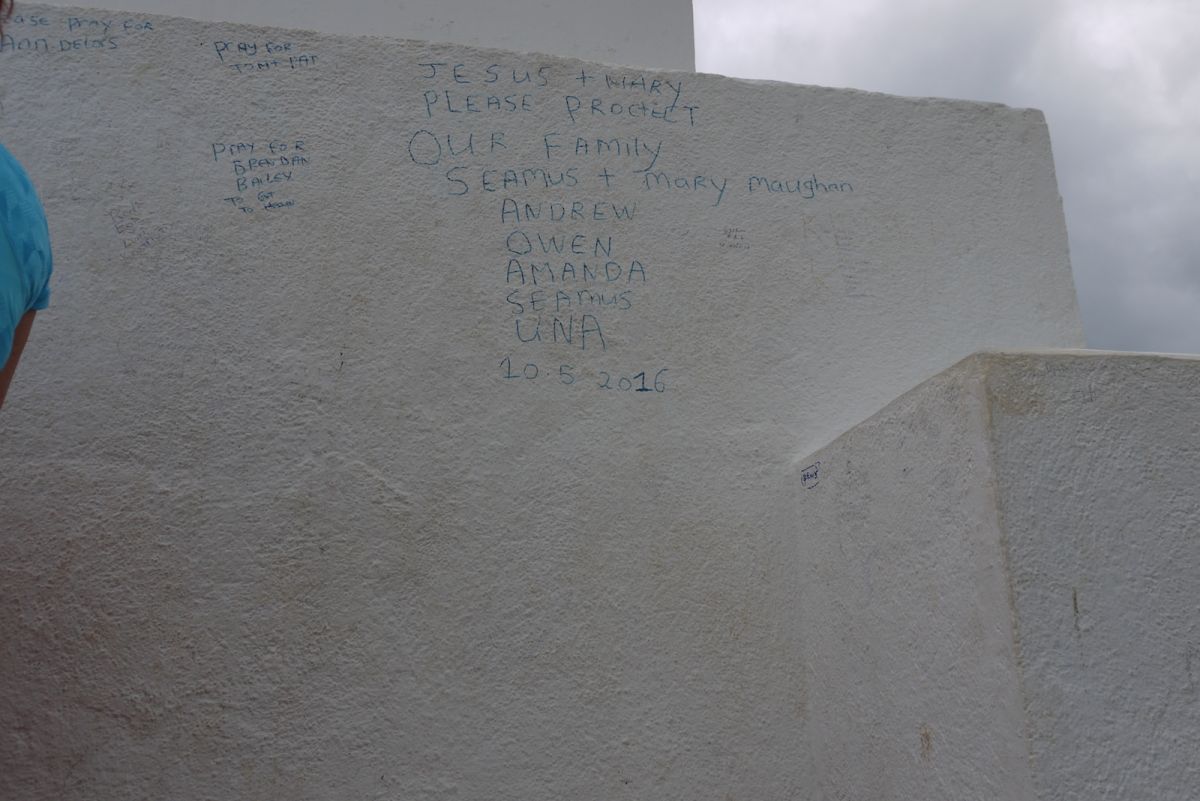 ase pray for
Ann.Delors
Pray for
Tom + Pat
JESUS + MARY
PLEASE PROCTECT
OUR FAMILY
SEAMUS + Mary Maughan
ANDREW
OWEN
AMANDA
SEAMUS
UNA
10.5 2016
Pray for
BRENDAN
BAILEY
To GET
To Heaven